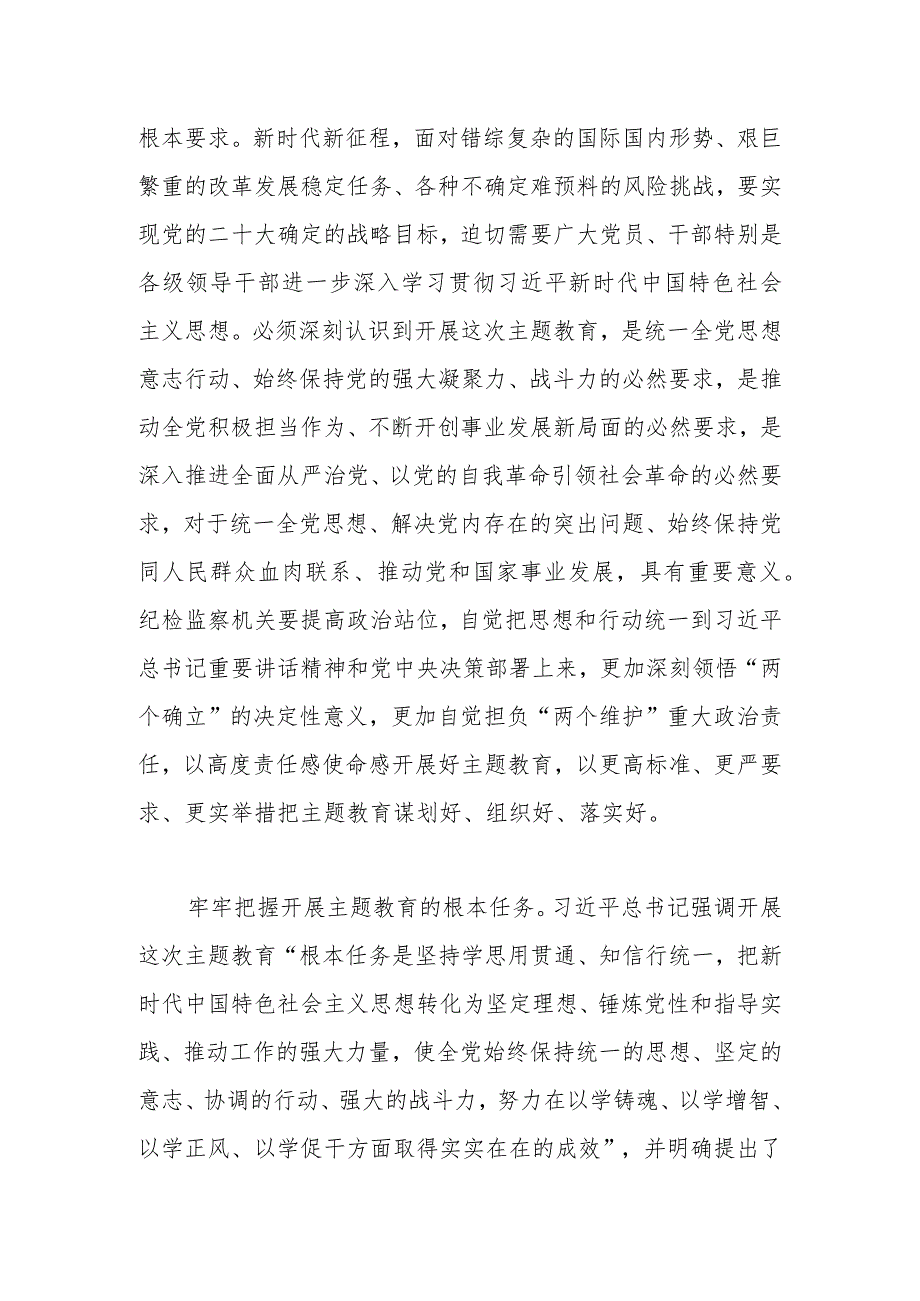 根本要求。新时代新征程，面对错综复杂的国际国内形势、艰巨
繁重的改革发展稳定任务、各种不确定难预料的风险挑战，要实
现党的二十大确定的战略目标，迫切需要广大党员、干部特别是
各级领导干部进一步深入学习贯彻习近平新时代中国特色社会
主义思想。必须深刻认识到开展这次主题教育，是统一全党思想
意志行动、始终保持党的强大凝聚力、战斗力的必然要求，是推
动全党积极担当作为、不断开创事业发展新局面的必然要求，是
深入推进全面从严治党、以党的自我革命引领社会革命的必然要
求，对于统一全党思想、解决党内存在的突出问题、始终保持党
同人民群众血肉联系、推动党和国家事业发展，具有重要意义。
纪检监察机关要提高政治站位，自觉把思想和行动统一到习近平
总书记重要讲话精神和党中央决策部署上来，更加深刻领悟“两
个确立”的决定性意义，更加自觉担负“两个维护”重大政治责
任，以高度责任感使命感开展好主题教育，以更高标准、更严要
求、更实举措把主题教育谋划好、组织好、落实好。
牢牢把握开展主题教育的根本任务。习近平总书记强调开展
这次主题教育“根本任务是坚持学思用贯通、知信行统一，把新
时代中国特色社会主义思想转化为坚定理想、锤炼党性和指导实
践、推动工作的强大力量，使全党始终保持统一的思想、坚定的
意志、协调的行动、强大的战斗力，努力在以学铸魂、以学增智、
以学正风、以学促干方面取得实实在在的成效”，并明确提出了